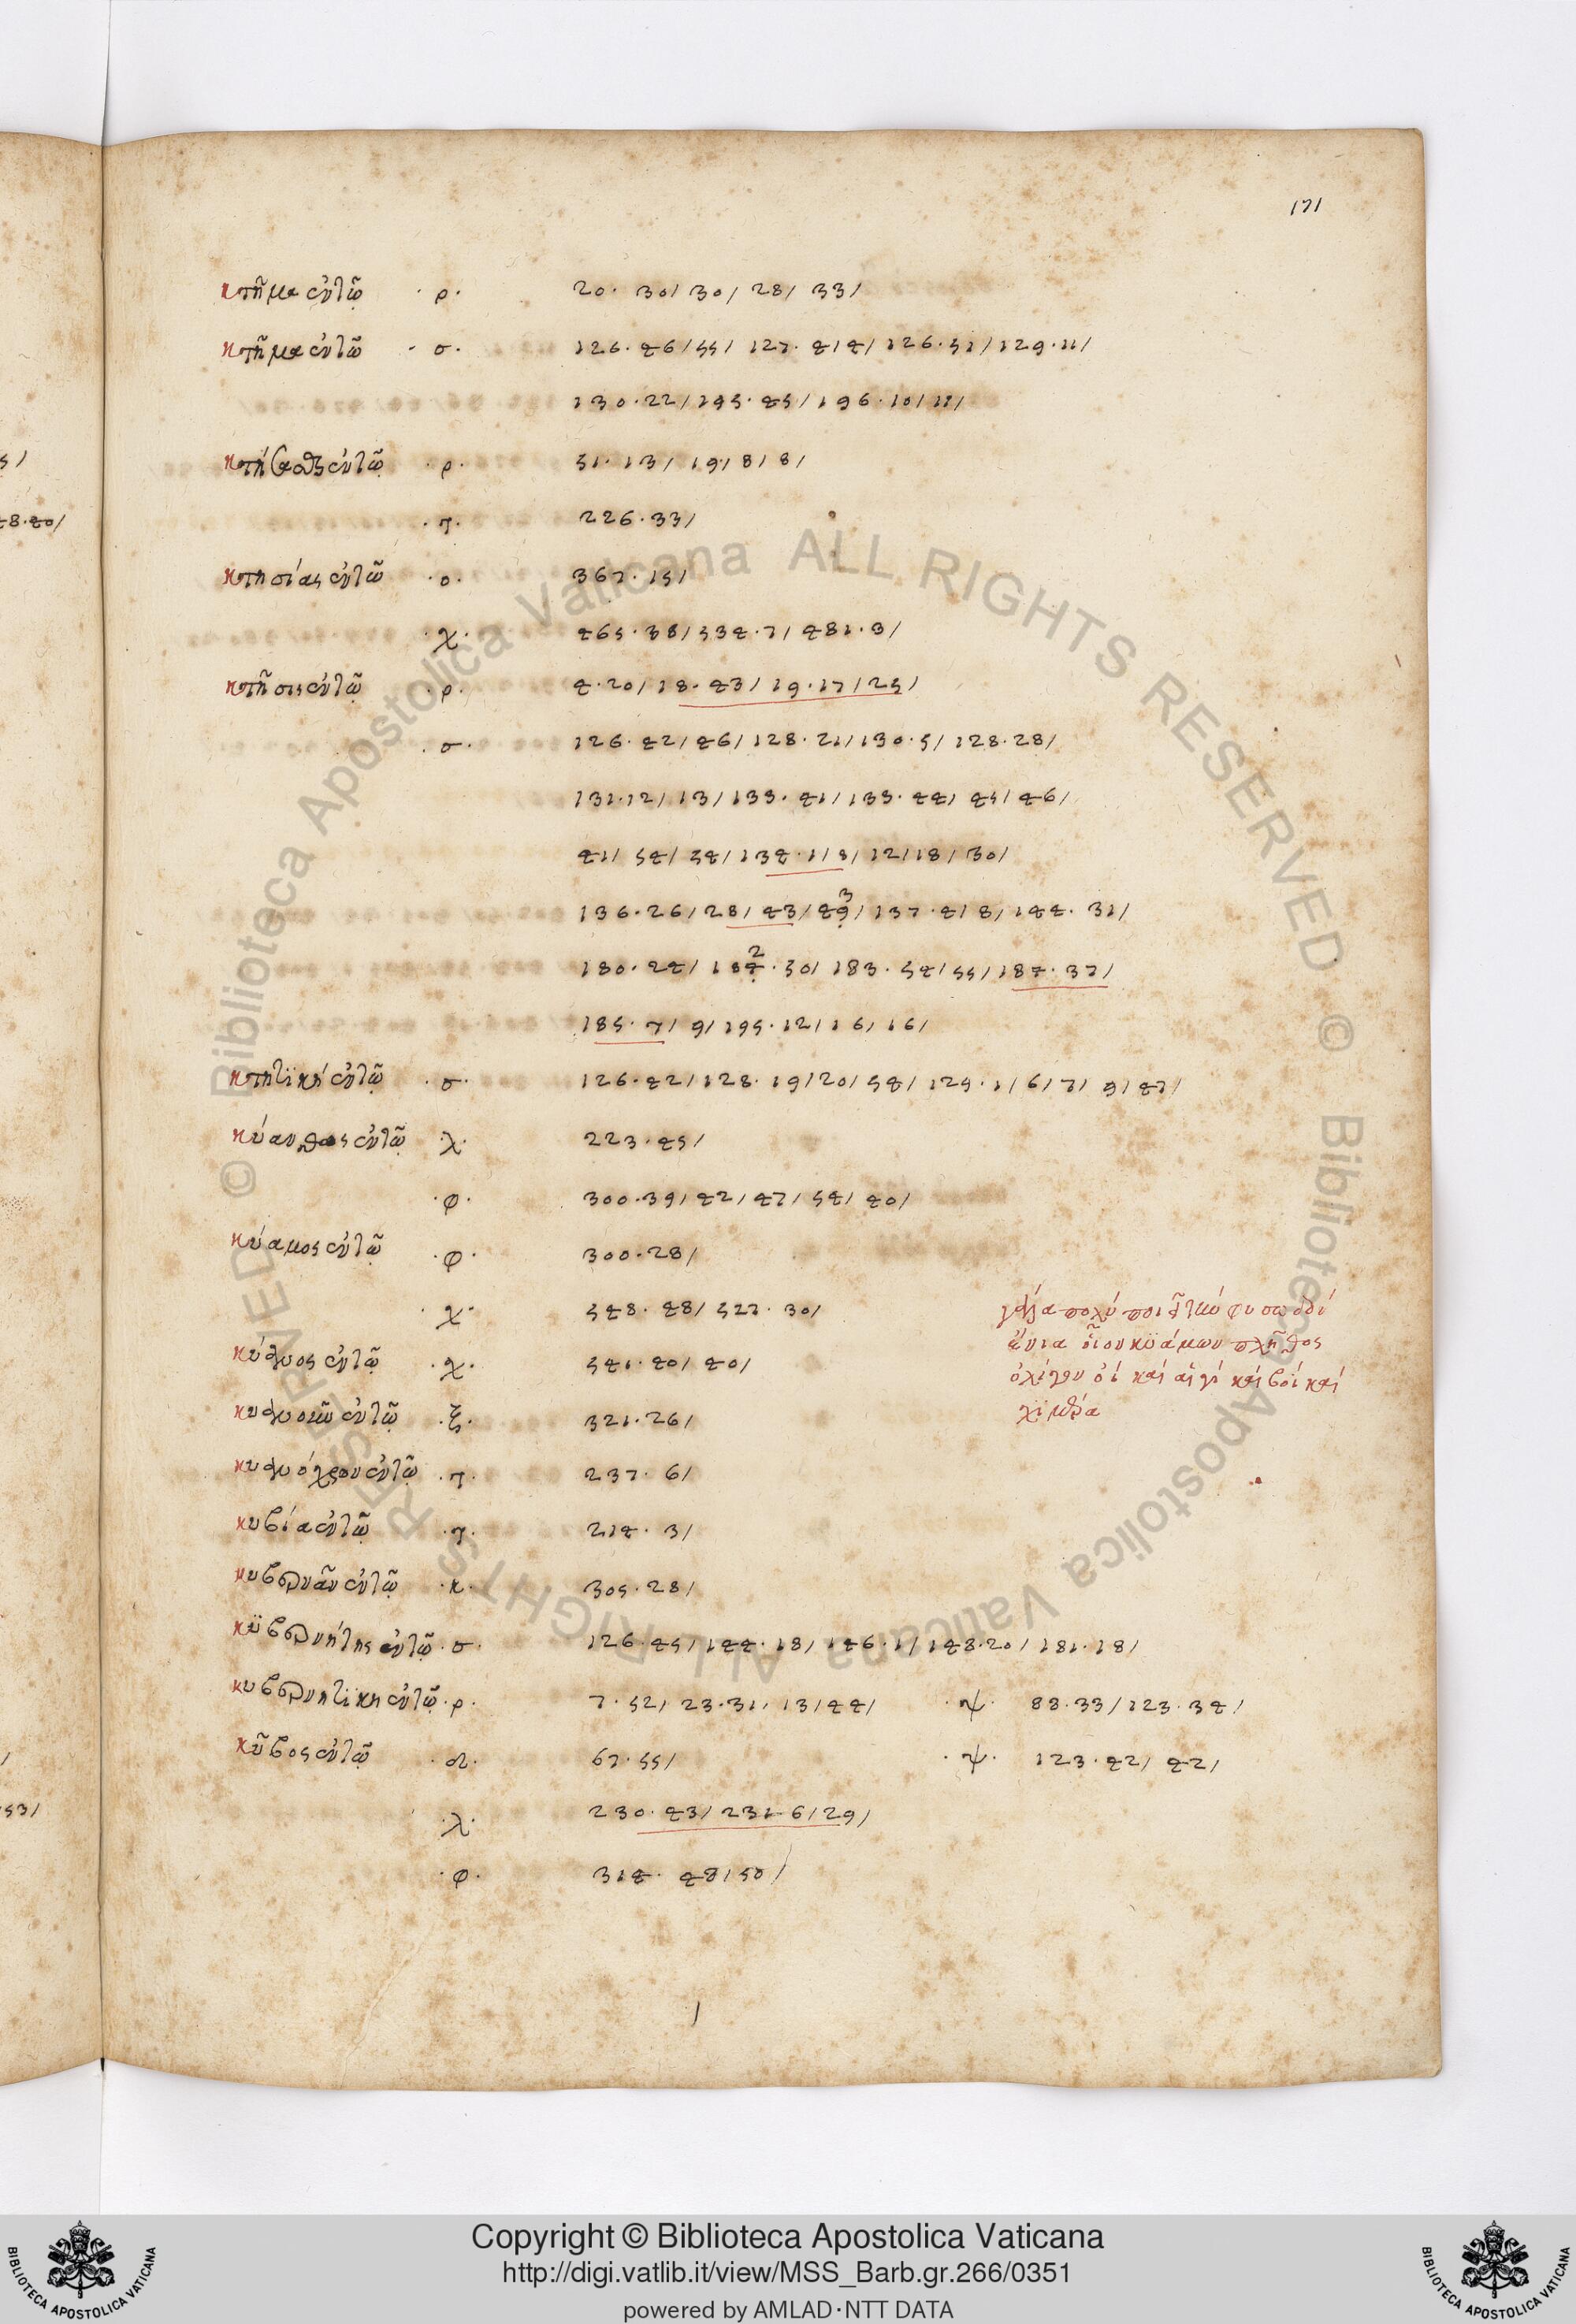 171
κτῆμα ἐν τῷ · ρ · 20 · 30/ 30/ 28/ 33/
κτῆμα ἐν τῷ · σ · 126 · 46/ 55/ 127 · 4/4/ 126 · 51/ 129 · 11/
130 · 22/ 195 · 45/ 196 · 10/ 11/
κτήσασθαι ἐν τῷ · ρ · 51 · 13/ 19/ 8/ 8/
226 · 33/
κτησίας ἐν τῷ · ο · 367 · 15/
· χ · 465 · 38/ 534 · 7/ 481 · 3/
κτῆσις ἐν τῷ · ρ · 4 · 20/ 18 · 43/ 19 · 17/ 25/
· σ · 126 · 42/ 46/ 128 · 21/ 130 · 5/ 128 · 28/
131 · 12/ 13/ 133 · 41/ 133 · 44/ 45/ 46/
41/ 54/ 54/ 134 · 1/ 8/ 12/ 18/ 30/
136 · 26/ 28/ 43/ 49/ 137 · 4/ 8/ 144 · 31/
3
180 · 24/ 184 · 50/ 183 · 54/ 55/ 187 · 37/
2
185 · 7/ 9/ 195 · 12/ 16/ 16/
κτητϊκή ἐν τῷ · σ · 126 · 42/ 128 · 19/ 20/ 54/ 129 · 1/ 6/ 7/ 9/ 47/
ἐν τῷ · λ · 223 · 45/
· φ · 300 · 39/ 42/ 47/ 54/ 40/
κύαμος ἐν τῷ · φ · 300 · 28/
· χ · 548 · 48/ 527 · 30/
ἐν τῷ · χ · 541 · 40/ 40/
ἐν τῷ · ξ · 321 · 26/
ἐν τῷ 237 · 6/
κυβία ἐν τῷ 214 · 3/
κυβερνᾶν ἐν τῷ · κ · 305 · 28/
κϋβερνήτης ἐν τῷ · σ · 126 · 45/ 144 · 18/ 146 · 1/ 148 · 20/ 181 · 18/
κυβερνητϊκη ἐν τῷ · ρ · 7 · 52/ 23 · 31/ 13/ 44/ · ψ · 88 · 33/ 123 · 34/
κῦβος ἐν τῷ 67 · 55/ · ψ · 123 · 42/ 42/
· λ · 230 · 43/ 231 · 6/ 29/
· φ · 314 · 48/ 50/
γάλα πολύ ποιεῖ
ἔνια οἷον κϋάμων πλῆθος
ὀλίγον καί αἰγί καί βοί καί
χϊμαίρα
Copyright © Biblioteca Apostolica Vaticana
http://digi.vatlib.it/view/MSS_Barb.gr.266/0351
powered by AMLAD · NTT DATA
BIBLIOTECA APOSTOLICA VATICANA
BIBLIOTECA APOSTOLICA VATICANA
© Biblioteca Apostolica Vaticana ALL RIGHTS RESERVED
© Biblioteca Apostolica Vaticana ALL RIGHTS RESERVED